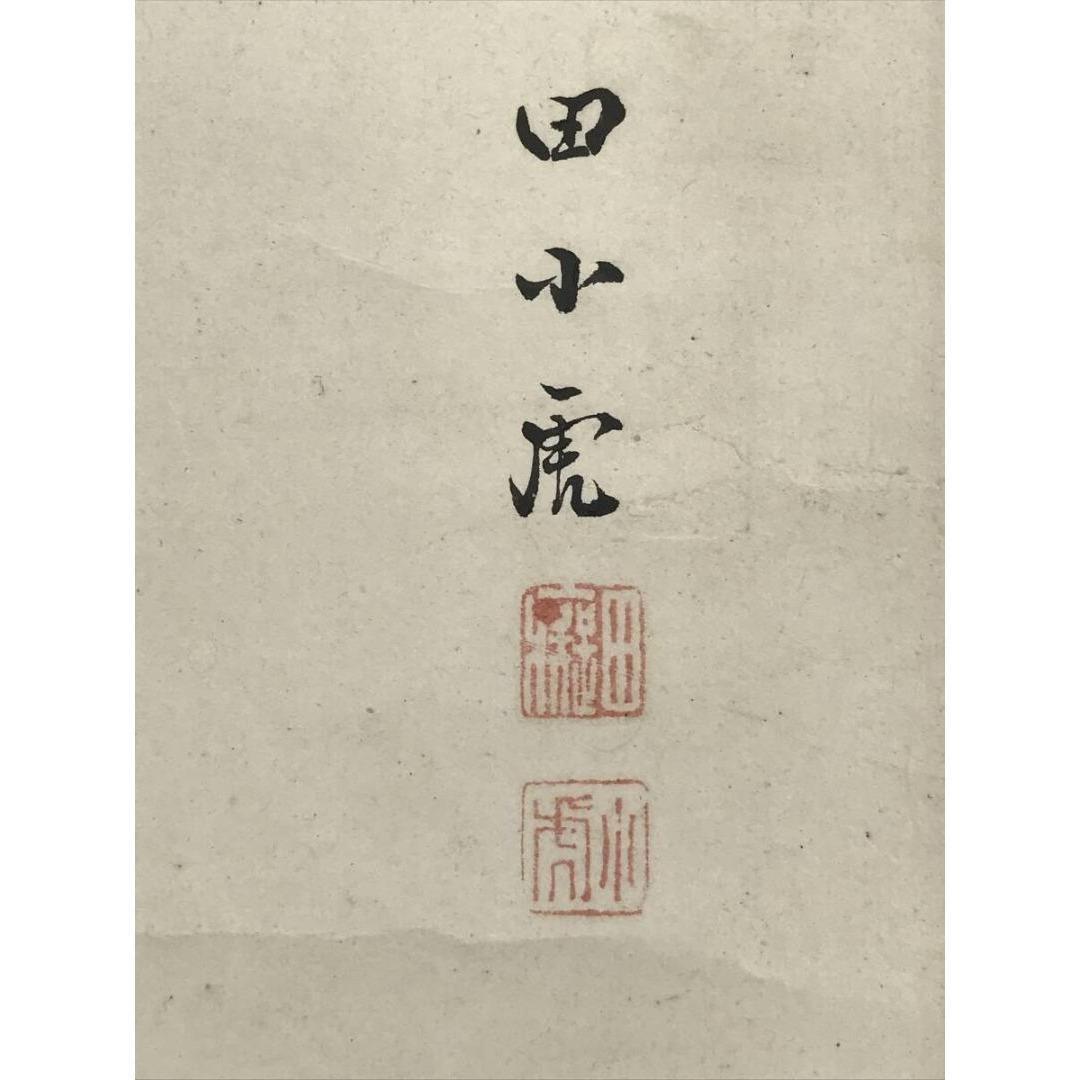 田小虎
小虎